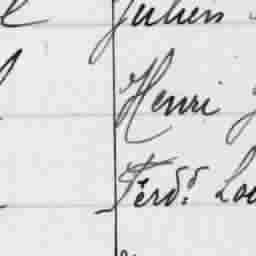 Julien
Henri
Ferd.d